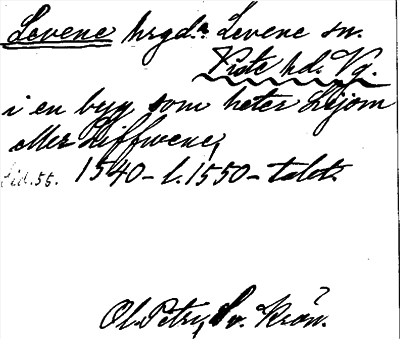 Levene hrgd. Levene sn.
Viste hd. Vg.
i en byy som heter Lejom
eller Liffwene,
Sid. 56. 1540- l. 1550-talet.
Ol. Petri, Sv. Krön.